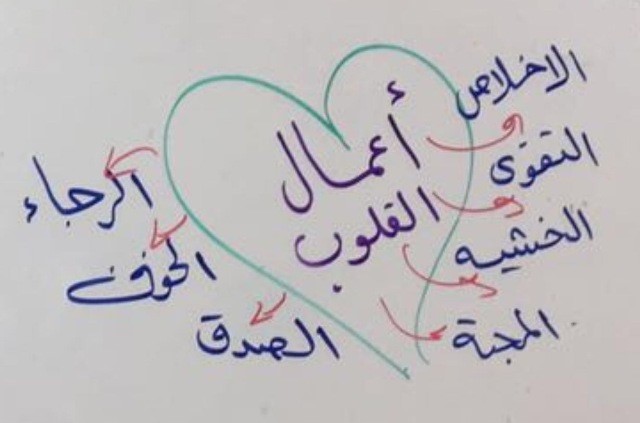 أعمال
القلوب
الاخلاص
التقوى
الخشيه
المحبة
الرجاء
الخوف
الصدق